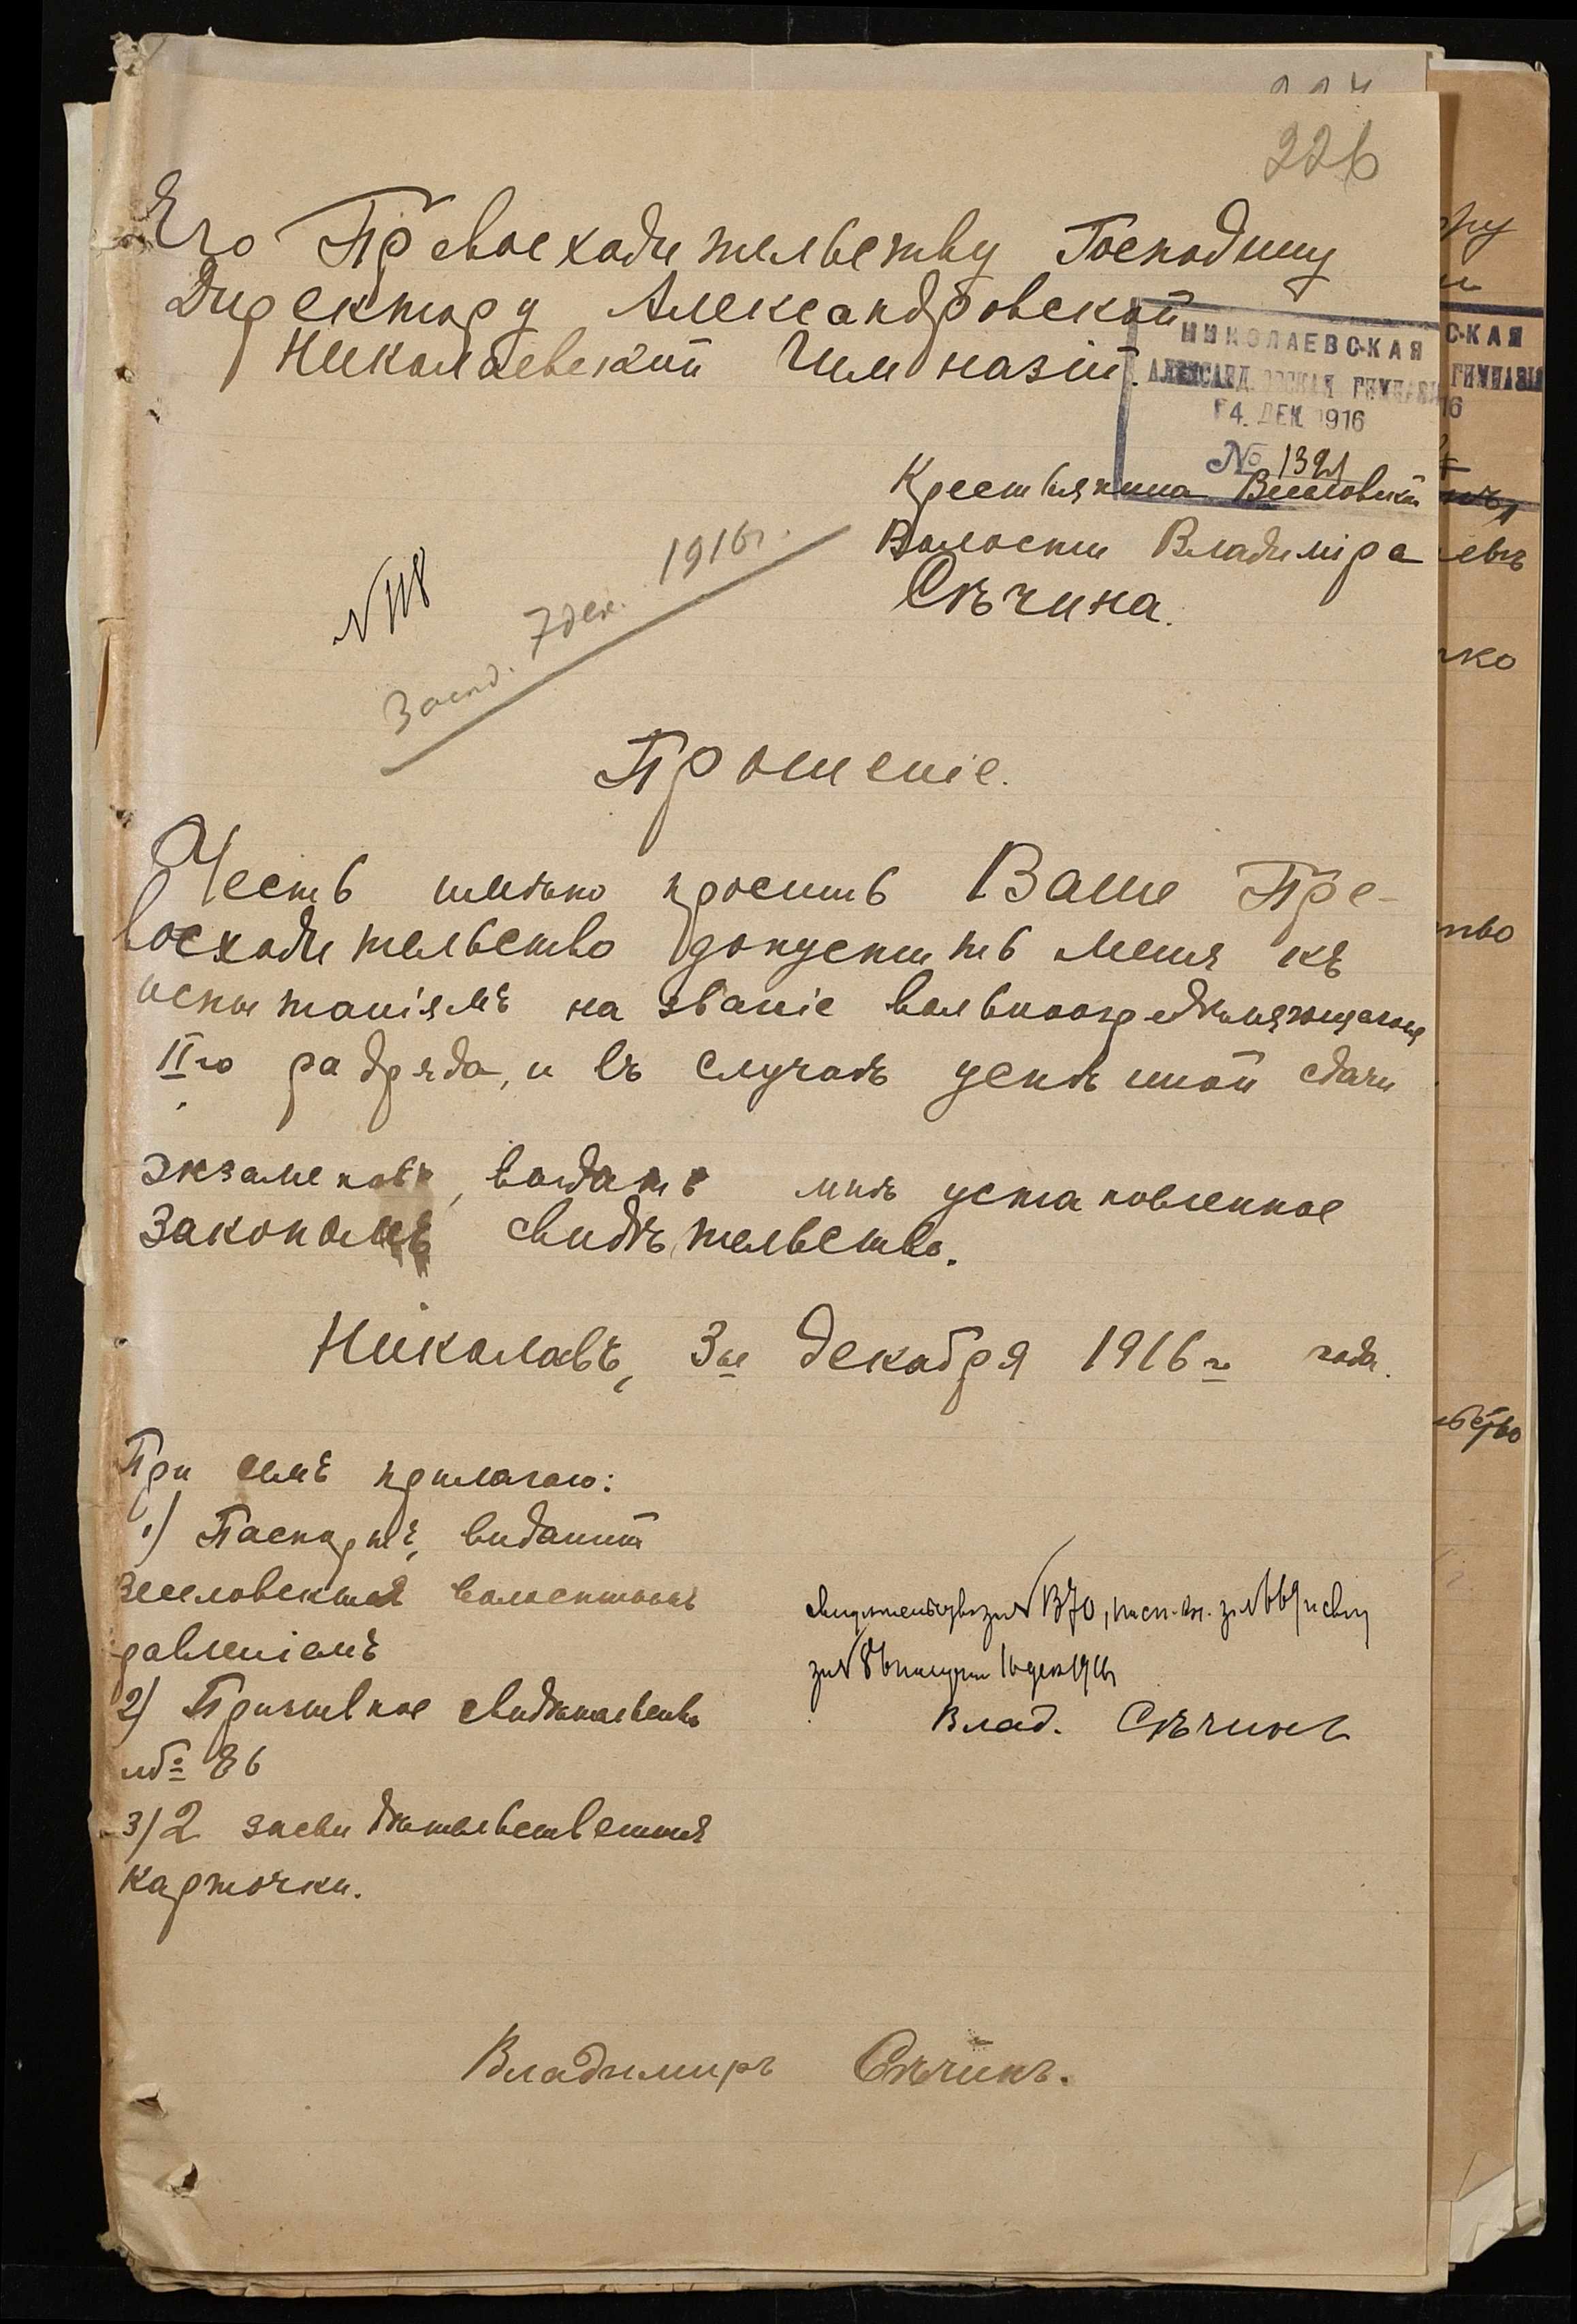 226
Его Превосходительству Господину
Директору Александровской
Николаевской Гимназіи.
НИКОЛАЕВСКАЯ
АЛЕКСАНДРОВСКАЯ ГИМНАЗІЯ
4. ДЕК 1916
№ 1321
Крестьянина Веселовской
Волости Владиміра
Сѣчина.
№ 118
Засѣд. 7 дек. 1916 г.
Прошеніе.
Честь имѣю просить Ваше Пре-
восходительство допустить меня къ
испытаніямъ на званіе вольноопредѣляющагося
II го разряда, и въ случаѣ успѣшной сдачи
экзаменовъ, выдать мнѣ установленное
закономъ свидѣтельство.
Николавъ, 3 го декабря 1916 го года.
При семъ прилагаю:
1) Паспортъ, виданный
Веселовскимъ волостнымъ
равленіемъ
2) Призывное свидѣтельство
№ 86
3) 2 засвидѣтельственныя
карточки.
свидѣтельство за № 1370, пасп. кн. за № 669 и свид
за № 86 получилъ 16 дек 1916 г
Влад. Сѣчинъ
Владимиръ Сѣчинъ.
СКАЯ
ГИМНАЗІЯ
16